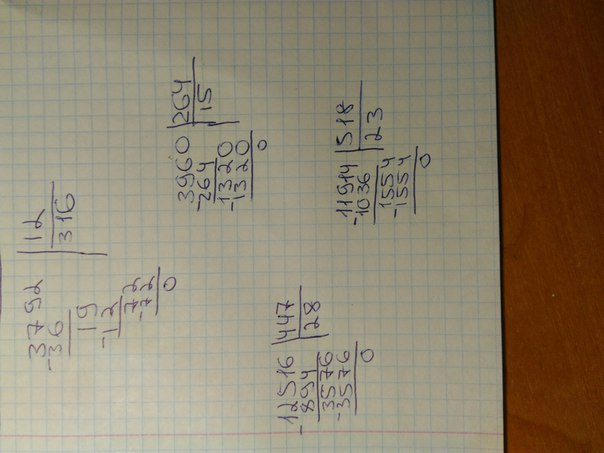 3792 |12
-36 316
19
-12
72
-72
0
3960 |264
-264 15
1320
-1320
0
-12516 |447
894 28
3576
-3576
0
-11914 |518
1036 23
1554
-1554
0